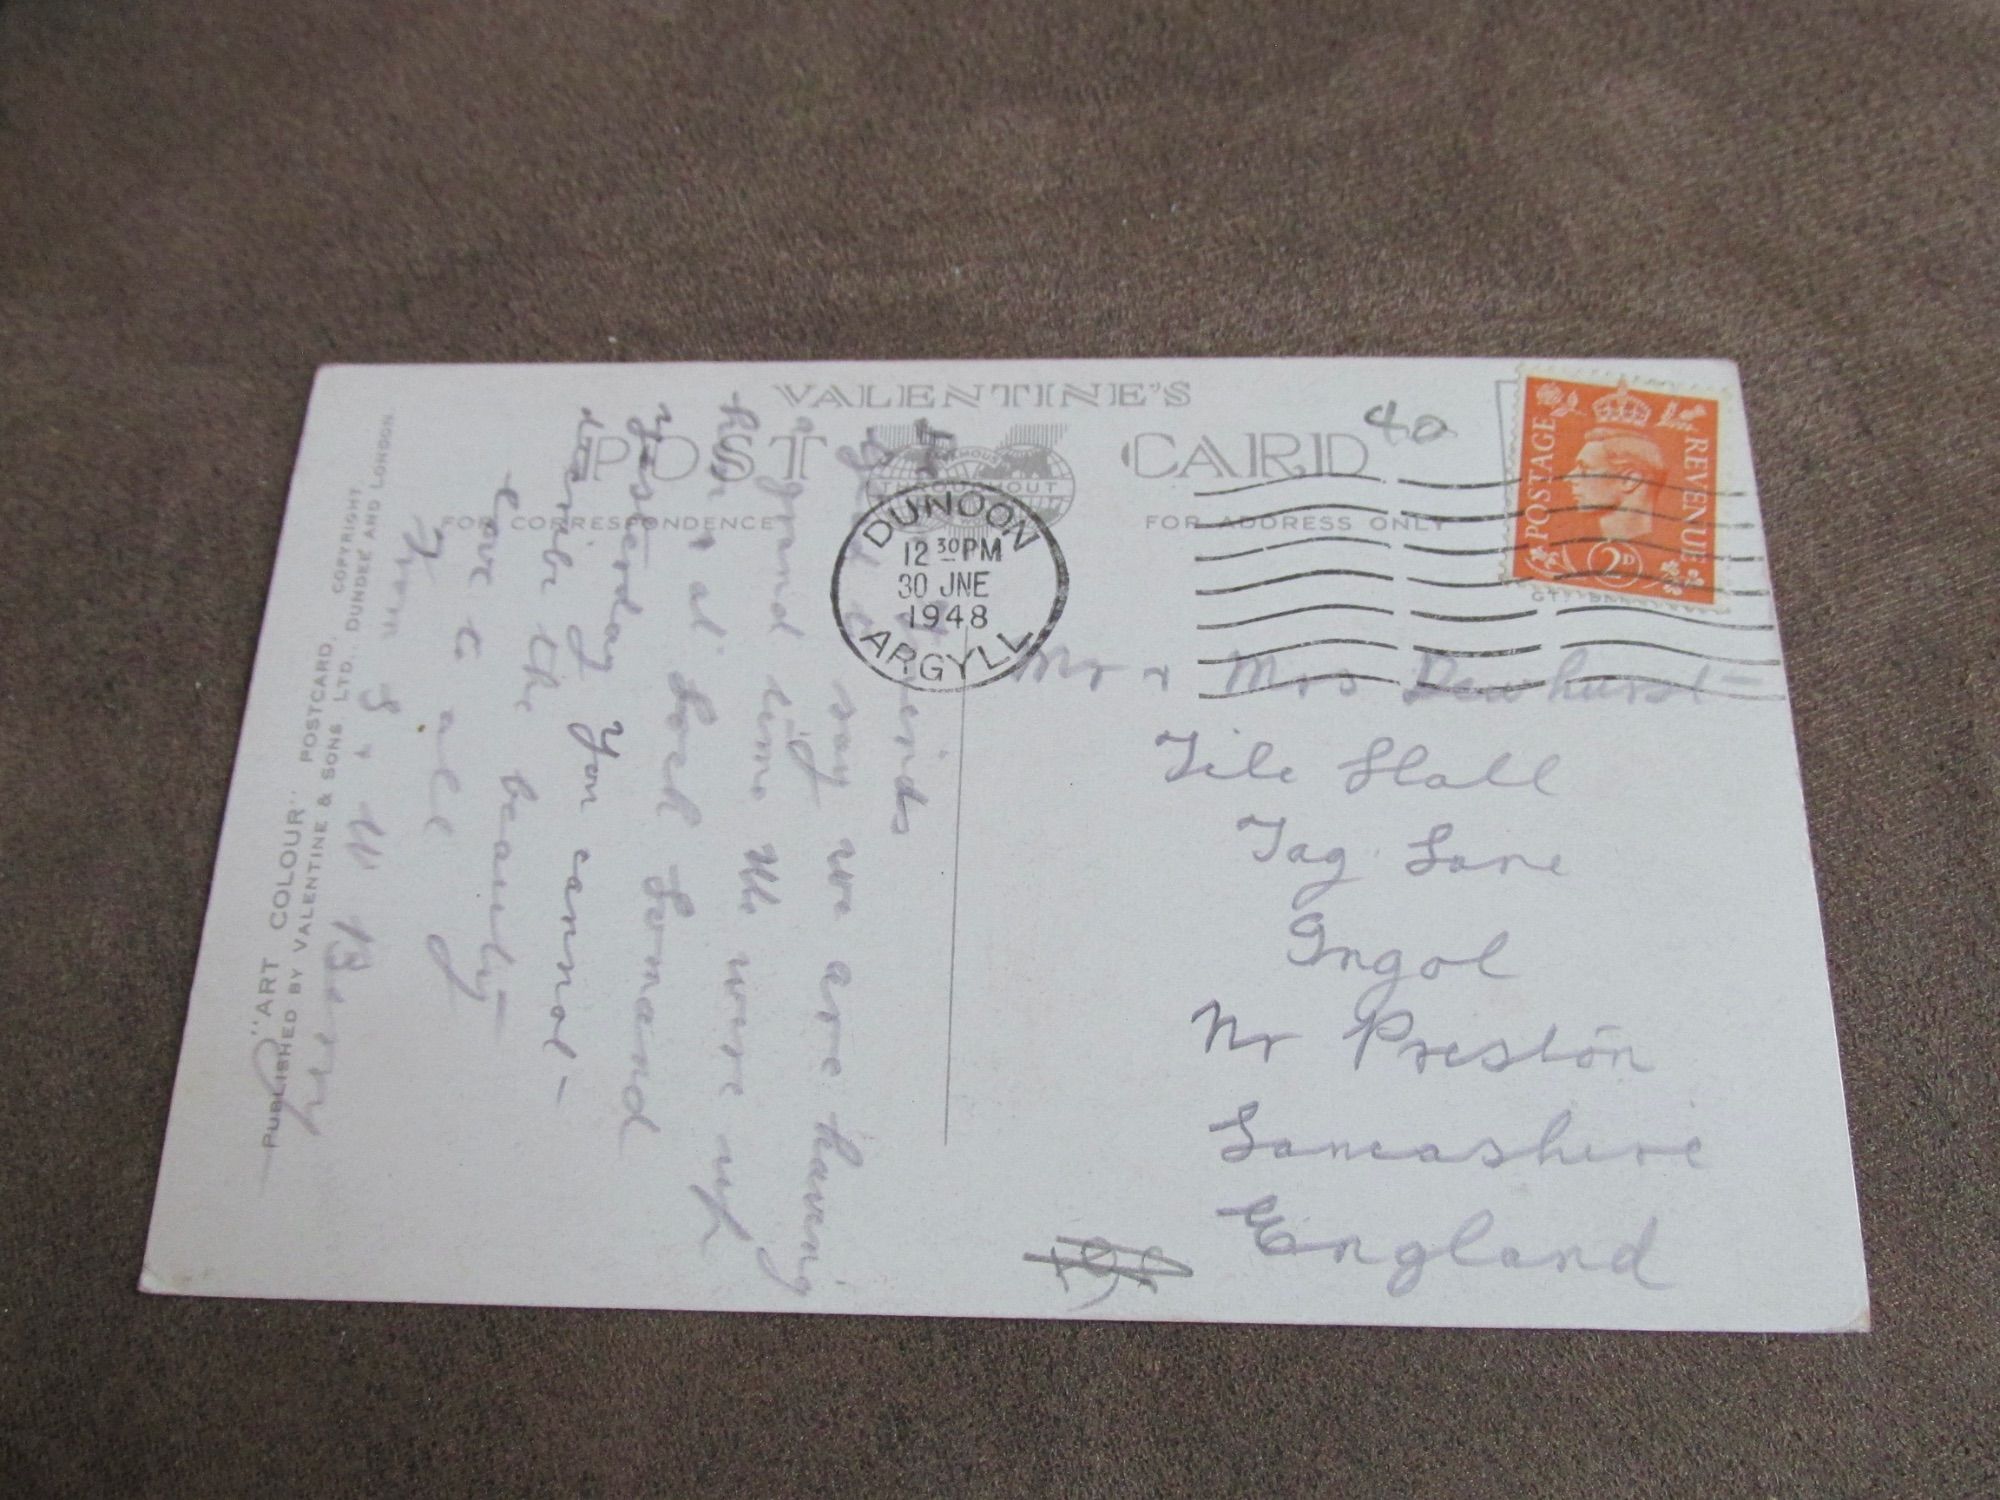 VALENTINE'S
POST CARD
FAMOUS THROUGHOUT
FOR CORRESPONDENCE
FOR ADDRESS ONLY
40
POSTAGE REVENUE
2D
DUNOON
12 30 PM
30 JNE
1948
ARGYLL
Dear Friends
say we are having
a grand time We were up
here at Loch Lomand
yesterday You cannot
describe the beauty
Love to all
W Berry
Mr & Mrs Dewhurst
Tile Stall
Tag Lane
Ingol
Nr Preston
Lancashire
England
"ART COLOUR" POSTCARD.
COPYRIGHT
PUBLISHED BY VALENTINE & SONS LTD., DUNDEE AND LONDON.